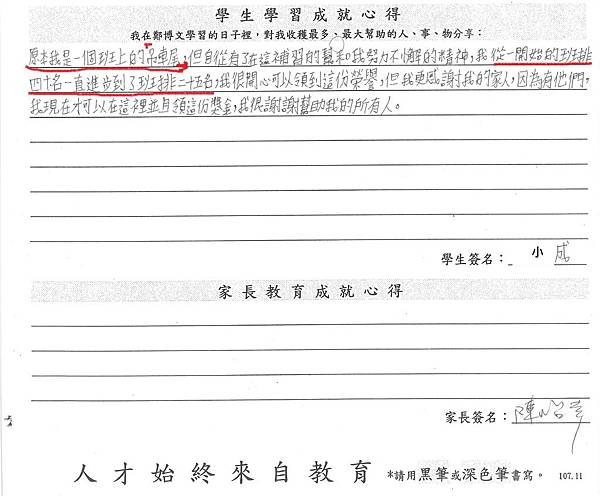 學生學習成就心得
我在鄭博文學習的日子裡,對我收穫最多、最大幫助的人、事、物分享:
原本我是一個班上的吊車尾,但自從有了在這補習的幫和我努力不懈的精神,我從一開始的班排
四十名一直進步到了班排二十五名,我很開心可以領到這份榮譽,但我更感謝我的家人,因為有他們,
我現在才可以在這裡並且領這份獎金,我很謝謝幫助我的所有人。
學生簽名: 小成
家長教育成就心得
家長簽名:陳
人才始終來自教育 *請用黑筆或深色筆書寫。 107.11